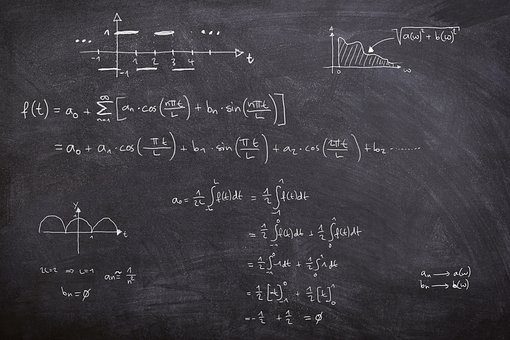 1
... ...
-1 1 2 3 4 t
-1
A √(a(ω)² + b(ω)²)
0 ω
f(t) = a₀ + ∑ₙ₌₁^∞ [aₙ · cos(nπt/L) + bₙ · sin(nπt/L)]
= a₀ + a₁ · cos(πt/L) + b₁ · sin(πt/L) + a₂ · cos(2πt/L) + b₂ ........
a₀ = 1/2L ∫₋L^L f(t)dt = 1/2 ∫₋₁^1 f(t)dt
= 1/2 ∫₋₁^0 f(t)dt + 1/2 ∫₀^1 f(t)dt
= 1/2 ∫₋₁^0 -1dt + 1/2 ∫₀^1 1dt
= 1/2 [-t]₋₁^0 + 1/2 [t]₀^1
= -1/2 + 1/2 = ∅
y
1 t
⇒ aₙ ≈ 1/n²
bₙ = ∅
aₙ → a(ω)
bₙ → b(ω)